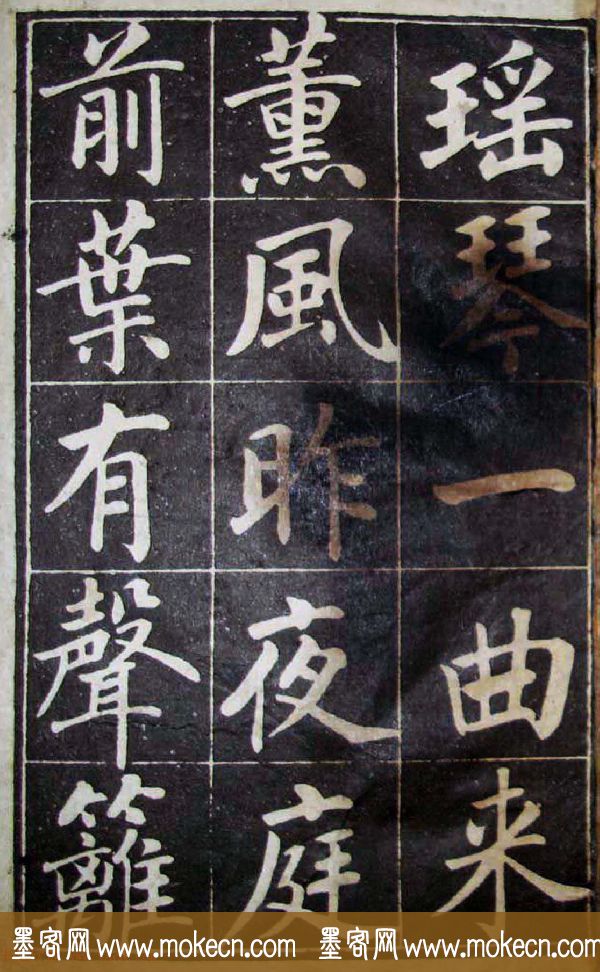 瑶琴一曲来
薰風昨夜庭
前葉有聲籬
墨客网 www.mokecn.com 墨客网 www.mokecn.com